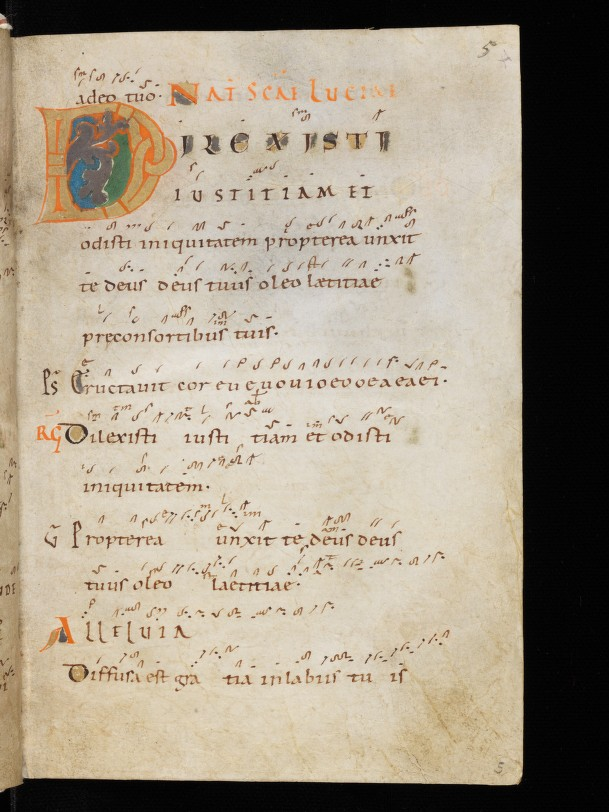 5
adeo tuo. NAT SCAE LUCIAE
DILEXISTI
IUSTITIAM ET
odisti iniquitatem propterea unxit
te deus deus tuus oleo lætitiae
preconsortibus tuis.
Ps Eructavit cor eu e,u o u i o e o o e a e a e i.
RG Dilexisti iusti tiam et odisti
iniquitatem.
G Propterea unxit te deus deus
tuus oleo laetitiae.
Alleluia
Diffusa est gra tia inlabiis tu is
5